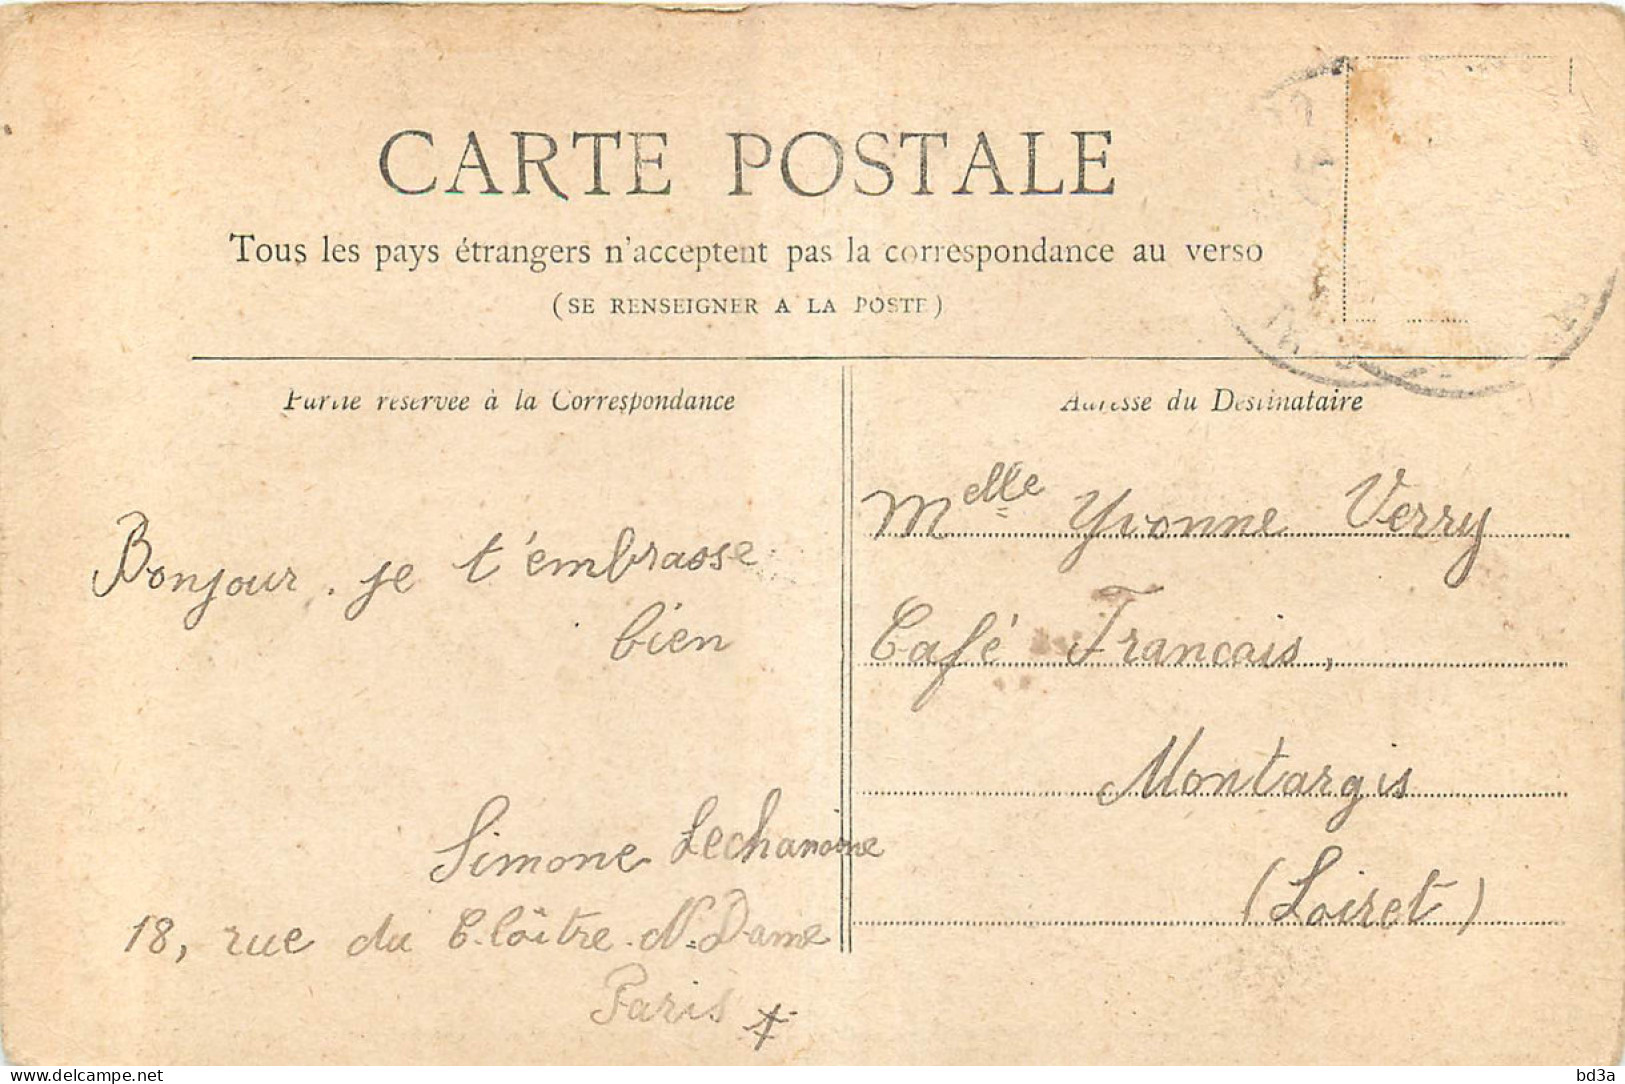 CARTE POSTALE
Tous les pays étrangers n'acceptent pas la correspondance au verso
(SE RENSEIGNER A LA POSTE)
Partie réservée à la Correspondance
Adresse du Destinataire
Bonjour. je t'embrasse
bien
Simone Lechanoine
18, rue du Cloître N. Dame
Paris
Melle Yvonne Verry
Café Francais,
Montargis
(Loiret)
www.delcampe.net
bd3a